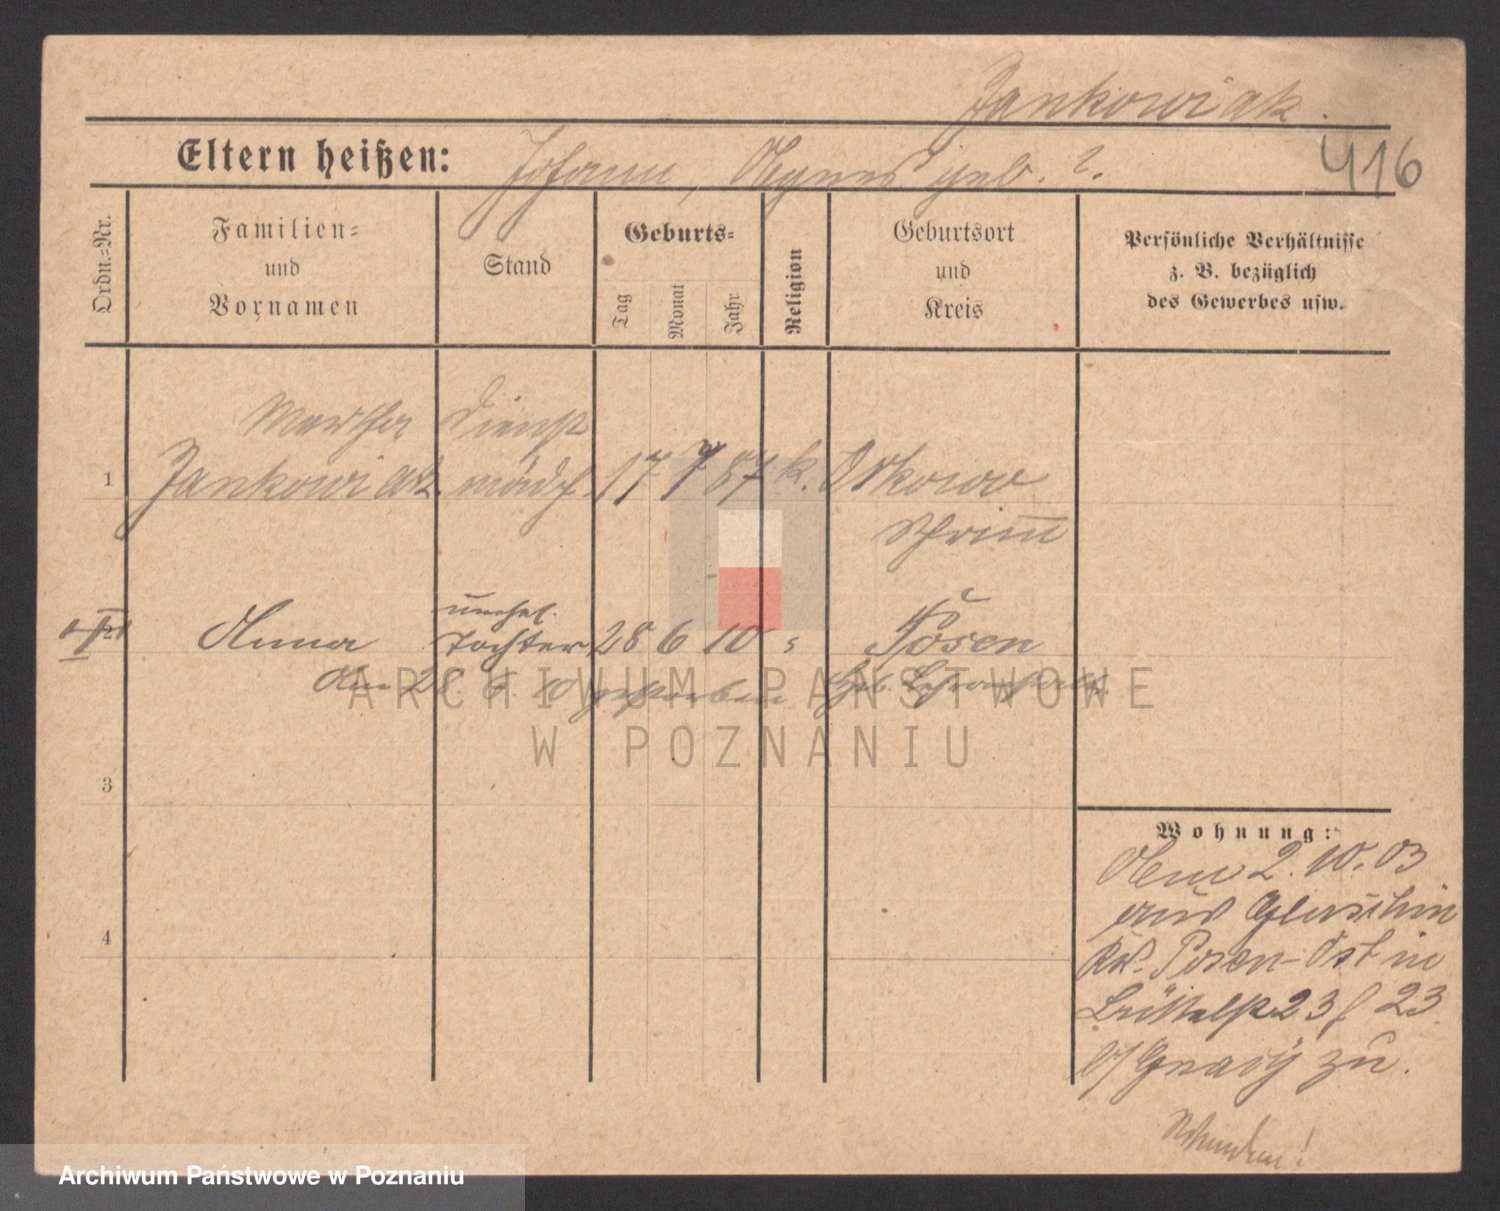 Jankowiak.
416
Eltern heißen: Johann, Agnes geb. ?.
Ordn.-Nr.
Familien-
und
Vornamen
Stand
Geburts-
Tag
Monat
Jahr
Religion
Geburtsort
und
Kreis
Persönliche Verhältnisse
z. B. bezüglich
des Gewerbes usw.
Martha Dienst
1 Jankowiak. mädch. 17 7 87 k. Otkowo
Schrimm
unehel.
2 Anna Tochter 28 6 10 " Posen
28. 6. 10 gestorben
ARCHIWUM PAŃSTWOWE
W POZNANIU
3
4
Wohnung:
2.10.03
aus Gluschin
Kr. Posen-Ost in
23 23
b/ zu.
Archiwum Państwowe w Poznaniu